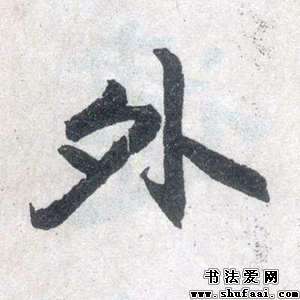 外
书法爱网
www.shufaai.com